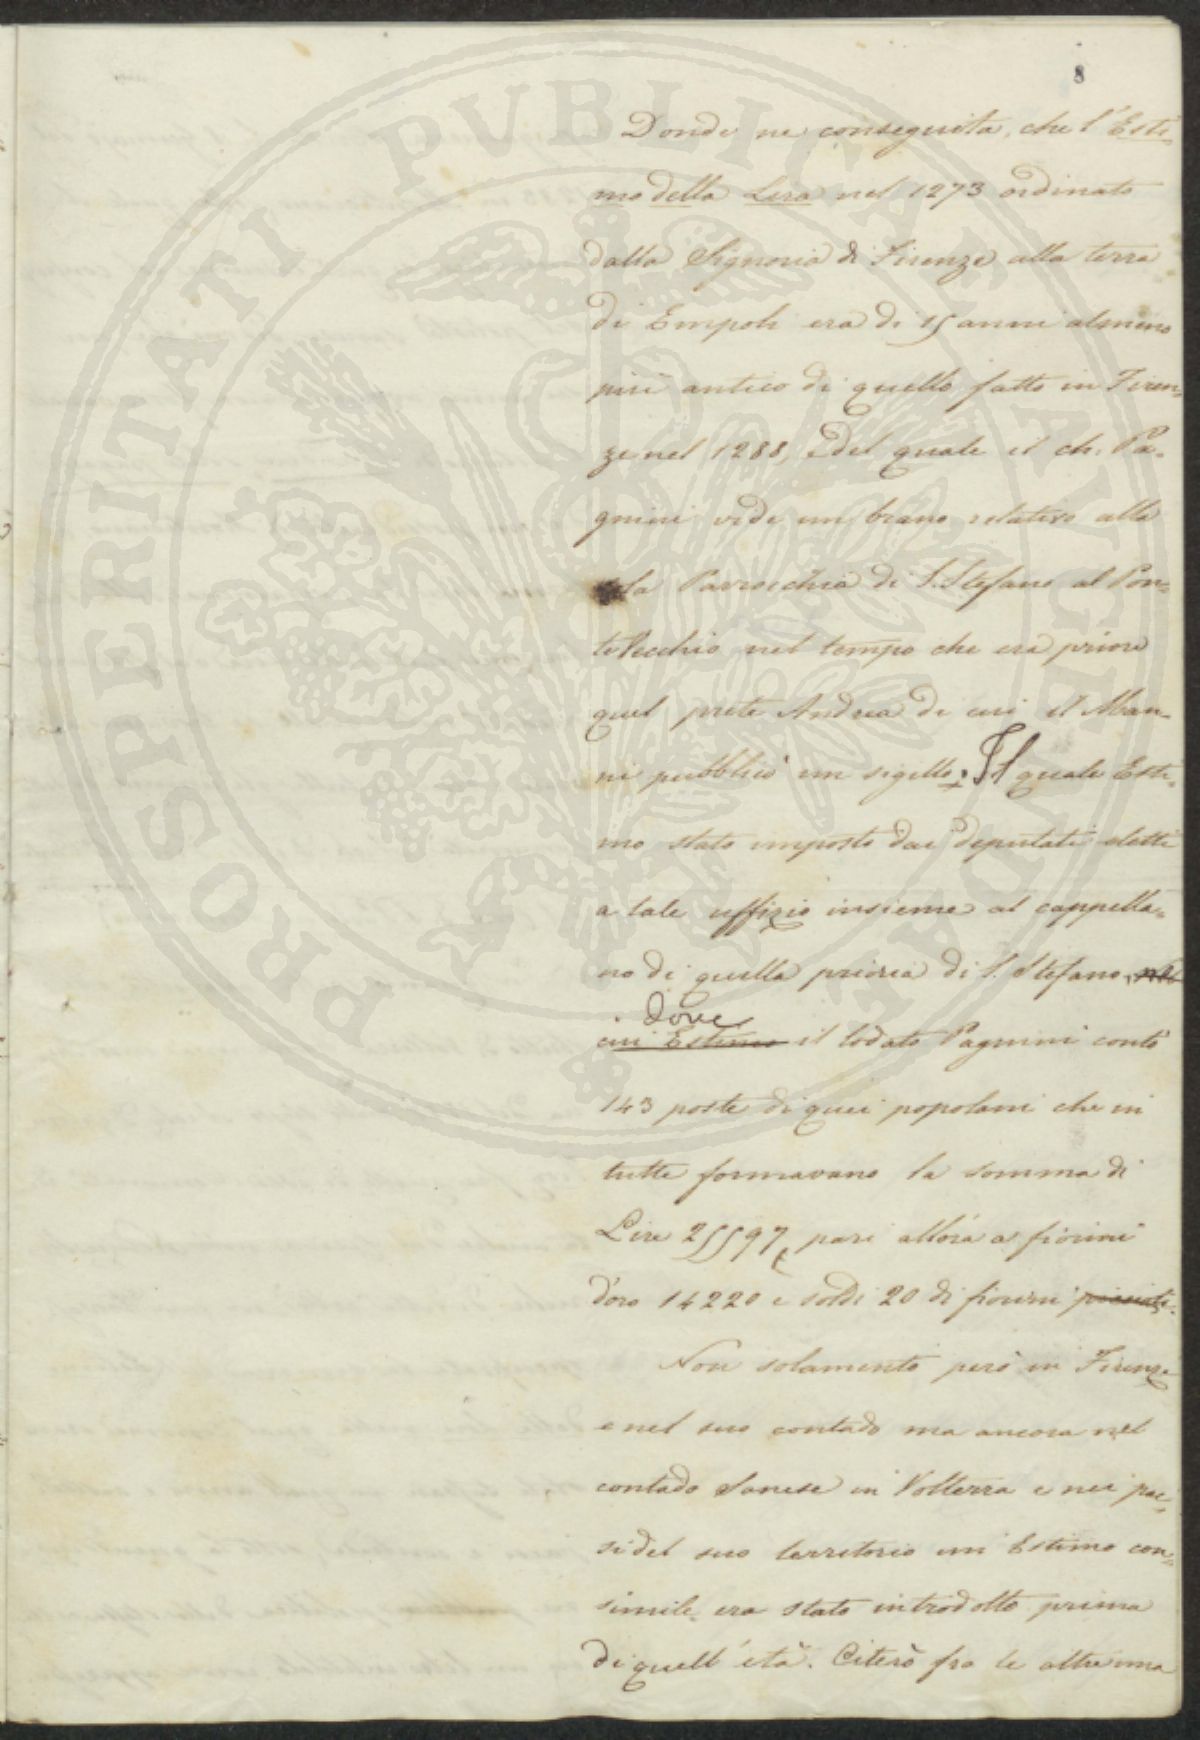 8
Donde ne conseguita, che l'Esti-
mo della Lira nel 1273 ordinato
dalla Signoria di Firenze alla terra
di Empoli era di 15 anni almeno
più antico di quello fatto in Firen-
ze nel 1288, e del quale il ch. Pa-
gnini vide un brano relativo alla
la Parrocchia di S. Stefano al Pon-
te Vecchio nel tempo che era priore
quel prete Andrea di cui il Man-
ni pubblicò un sigillo. Il quale Esti-
mo stato imposto dai deputati eletti
a tale uffizio insieme al cappella-
no di quella prioria di S. Stefano, nel
dove
cui Estimo il lodato Pagnini contò
143 poste di quei popolani che in
tutte formavano la somma di
Lire 25597, pari allora a fiorini
d'oro 14220 e soldi 20 di fiorini piccioli.
Non solamente però in Firenze
e nel suo contado ma ancora nel
contado Sanese in Volterra e nei pae-
si del suo territorio un Estimo con-
simile era stato introdotto prima
di quell'età. Citerò fra le altre una
PROSPERITATI PUBLICAE AUGENDAE